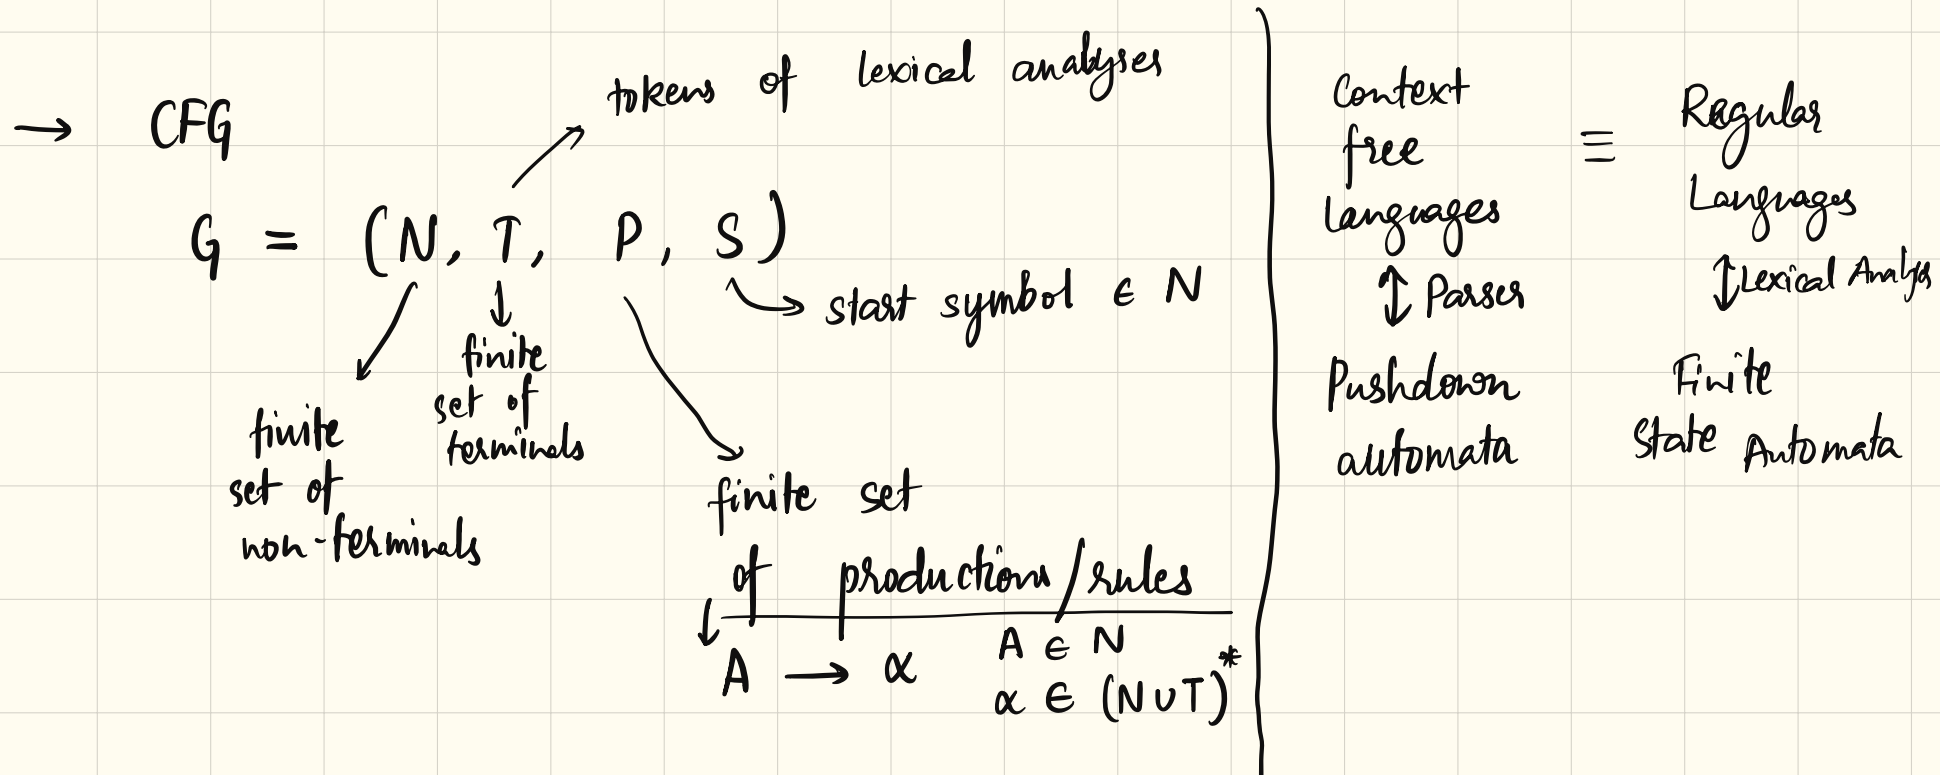 → CFG
tokens of lexical analyses
G = (N, T, P, S)
start symbol ∈ N
finite
set of
terminals
finite
set of
non-terminals
finite set
of productions/rules
A → α
A ∈ N
α ∈ (N ∪ T)*
Context
free
Languages
≡
Regular
Languages
↕ Parser
↕ Lexical Analys
Pushdown
automata
Finite
State Automata